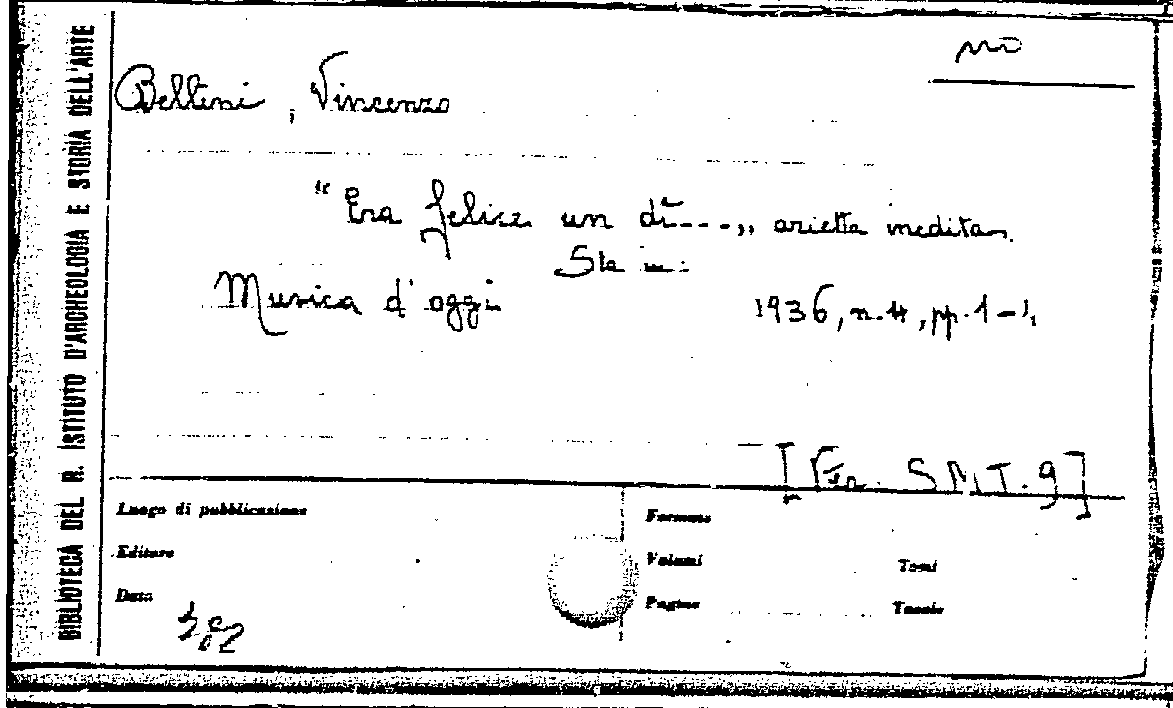 BIBLIOTECA DEL R. ISTITUTO D'ARCHEOLOGIA E STORIA DELL'ARTE
Bellini, Vincenzo
"Era felice un dì---,, arietta inedita
Musica d'oggi 1936, n. 4, pp. 1-
S M T. 9]
Luogo di pubblicazione
Formato
Editore
Volumi Tomi
Data
Pagine Tavole